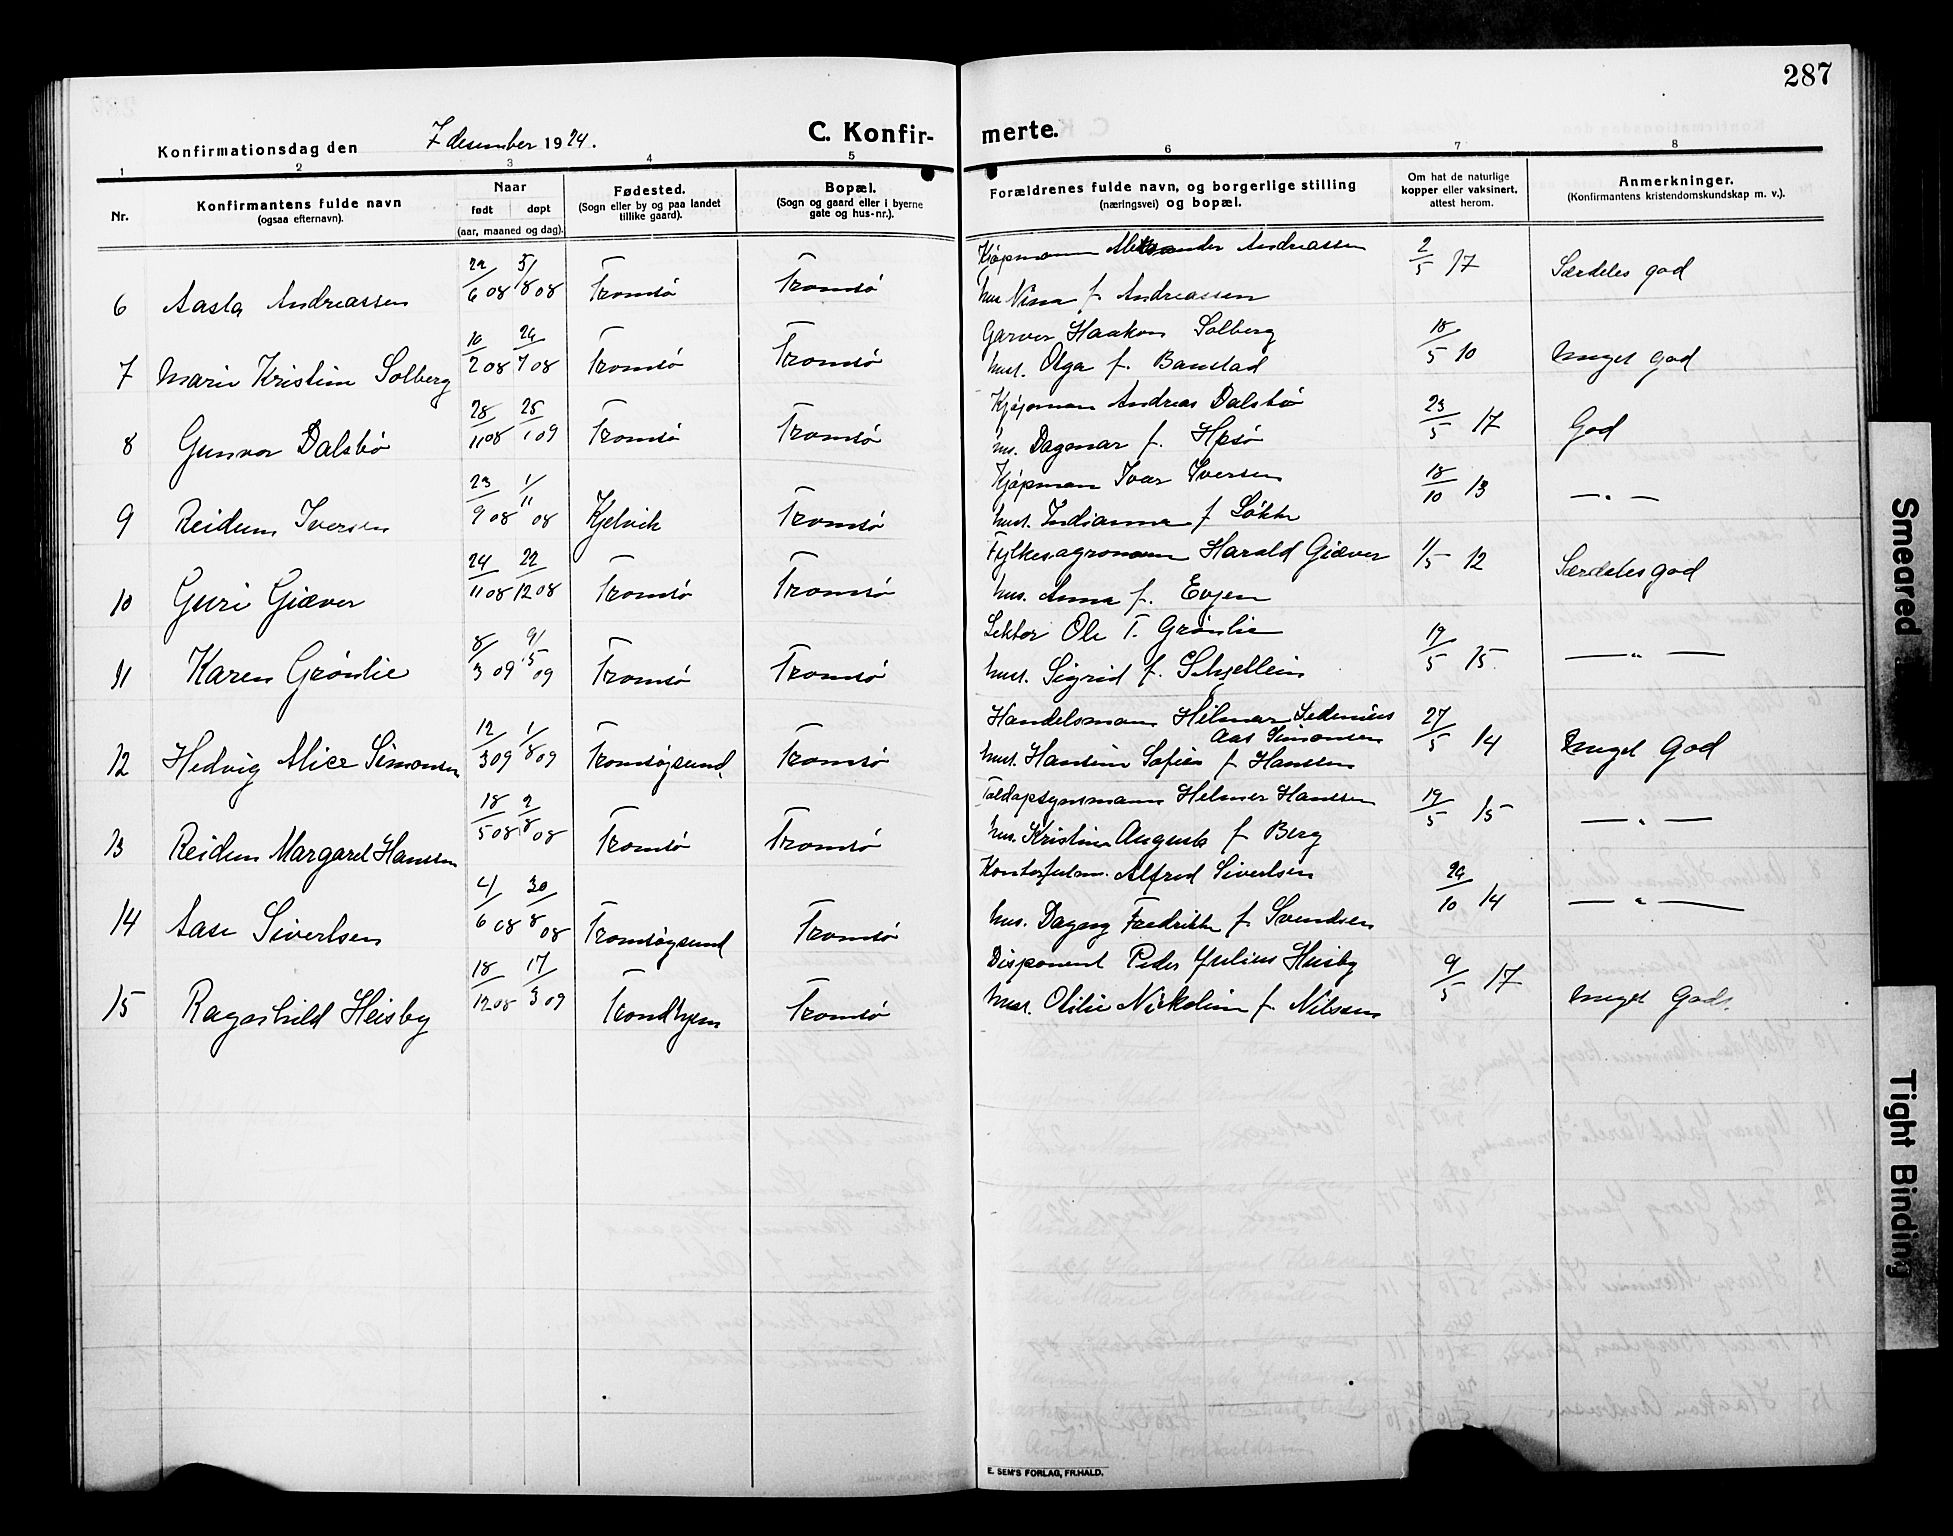 287
Konfirmationsdag den 7 desember 1924.
C. Konfirmerte.
1 2 3 4 5 6 7 8
Nr.
Konfirmantens fulde navn
(ogsaa efternavn).
Naar
født døpt
(aar, maaned og dag).
Fødested.
(Sogn eller by og paa landet
tillike gaard).
Bopæl.
(Sogn og gaard eller i byerne
gate og hus-nr.).
Forældrenes fulde navn, og borgerlige stilling
(næringsvei) og bopæl.
Om hat de naturlige
kopper eller vaksinert,
attest herom.
Anmerkninger.
(Konfirmantens kristendomskundskap m. v.).
6 Aasta Andreassen 22/6 08 5/8 08 Tromsø Tromsø
Kjøpmann Aleksander Andreassen
hus. Nina f. Andreassen
2/5 17 Særdeles god
7 Marie Kristine Solberg 10/2 08 26/7 08 Tromsø Tromsø
Garver Haakon Solberg
hust. Olga f. Banstad
18/5 10 Meget god
8 Gunvor Dalsbø 28/11 08 25/1 09 Tromsø Tromsø
Kjøpman Andreas Dalsbø
hus. Dagmar f.
23/5 17 God
9 Reidun Iversen 23/9 08 1/11 08 Kjelvik Tromsø
Kjøpman Ivar Iversen
hust. Indianna f. Løkke
18/10 13 — " —
10 Guri Giæver 24/11 08 22/12 08 Tromsø Tromsø
Fylkesagronom Harald Giæver
hus. Anna f. Evjen
11/5 12 Særdeles god
11 Karen Grønlie 8/3 09 9/5 09 Tromsø Tromsø
Lektor Ole T. Grønlie
hust. Sigrid f.
19/5 15. — " —
12 Hedvig Alice Simonsen 12/3 09 1/8 09 Tromsøysund. Tromsø
Handelsmann Hilmar Sedenius
Aas Simonsen
hust. Hansine Sofie f. Hanssen
27/5 14 Meget God
13 Reidun Margaret Hanssen 18/5 08 2/8 08 Tromsø Tromsø
Toldopsynsmann Helmer Hanssen
hus. Kristine Augusta f. Berg
19/5 15 — " —
14 Aase Sivertsen 4/6 08 30/8 08 Tromsøysund Tromsø
Kontorfulm. Alfred Sivertsen
hus. Dagny Fredrikke f. Svendsen
29/10 14 — " —
15 Ragnhild Heisby 18/12 08 17/3 09 Trondhjem Tromsø
Disponent Peder Julius Heisby
hust. Otilie Nikoline f. Nilsen
9/5 17 Meget God.
E. SEM'S FORLAG, FR.HALD.
Smeared
Tight Binding